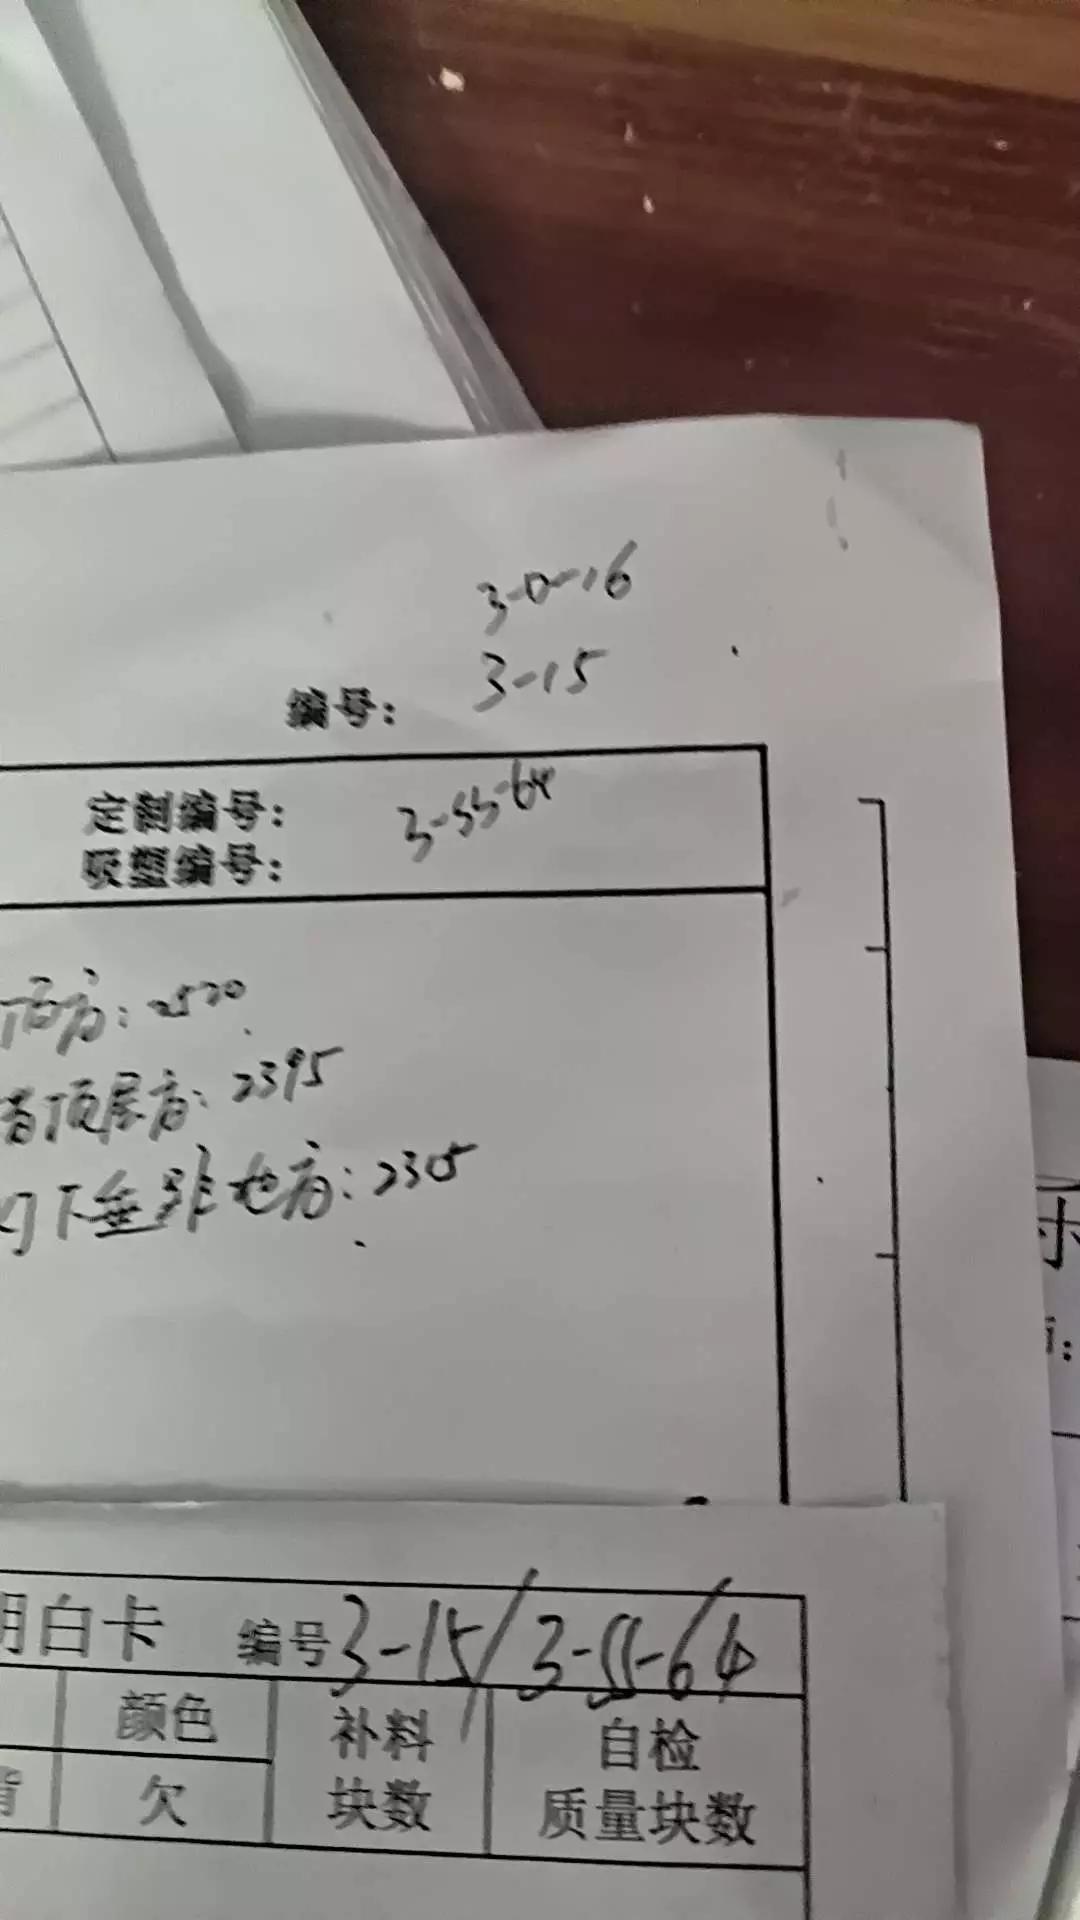 3-0-16
3-15
编号:
定制编号: 3-55-64
吸塑编号:
方: 2520
顶层高: 2395
灯下垂距地高: 2305
明白卡 编号 3-15/3-55-64
颜色 补料块数 自检质量块数
背 欠